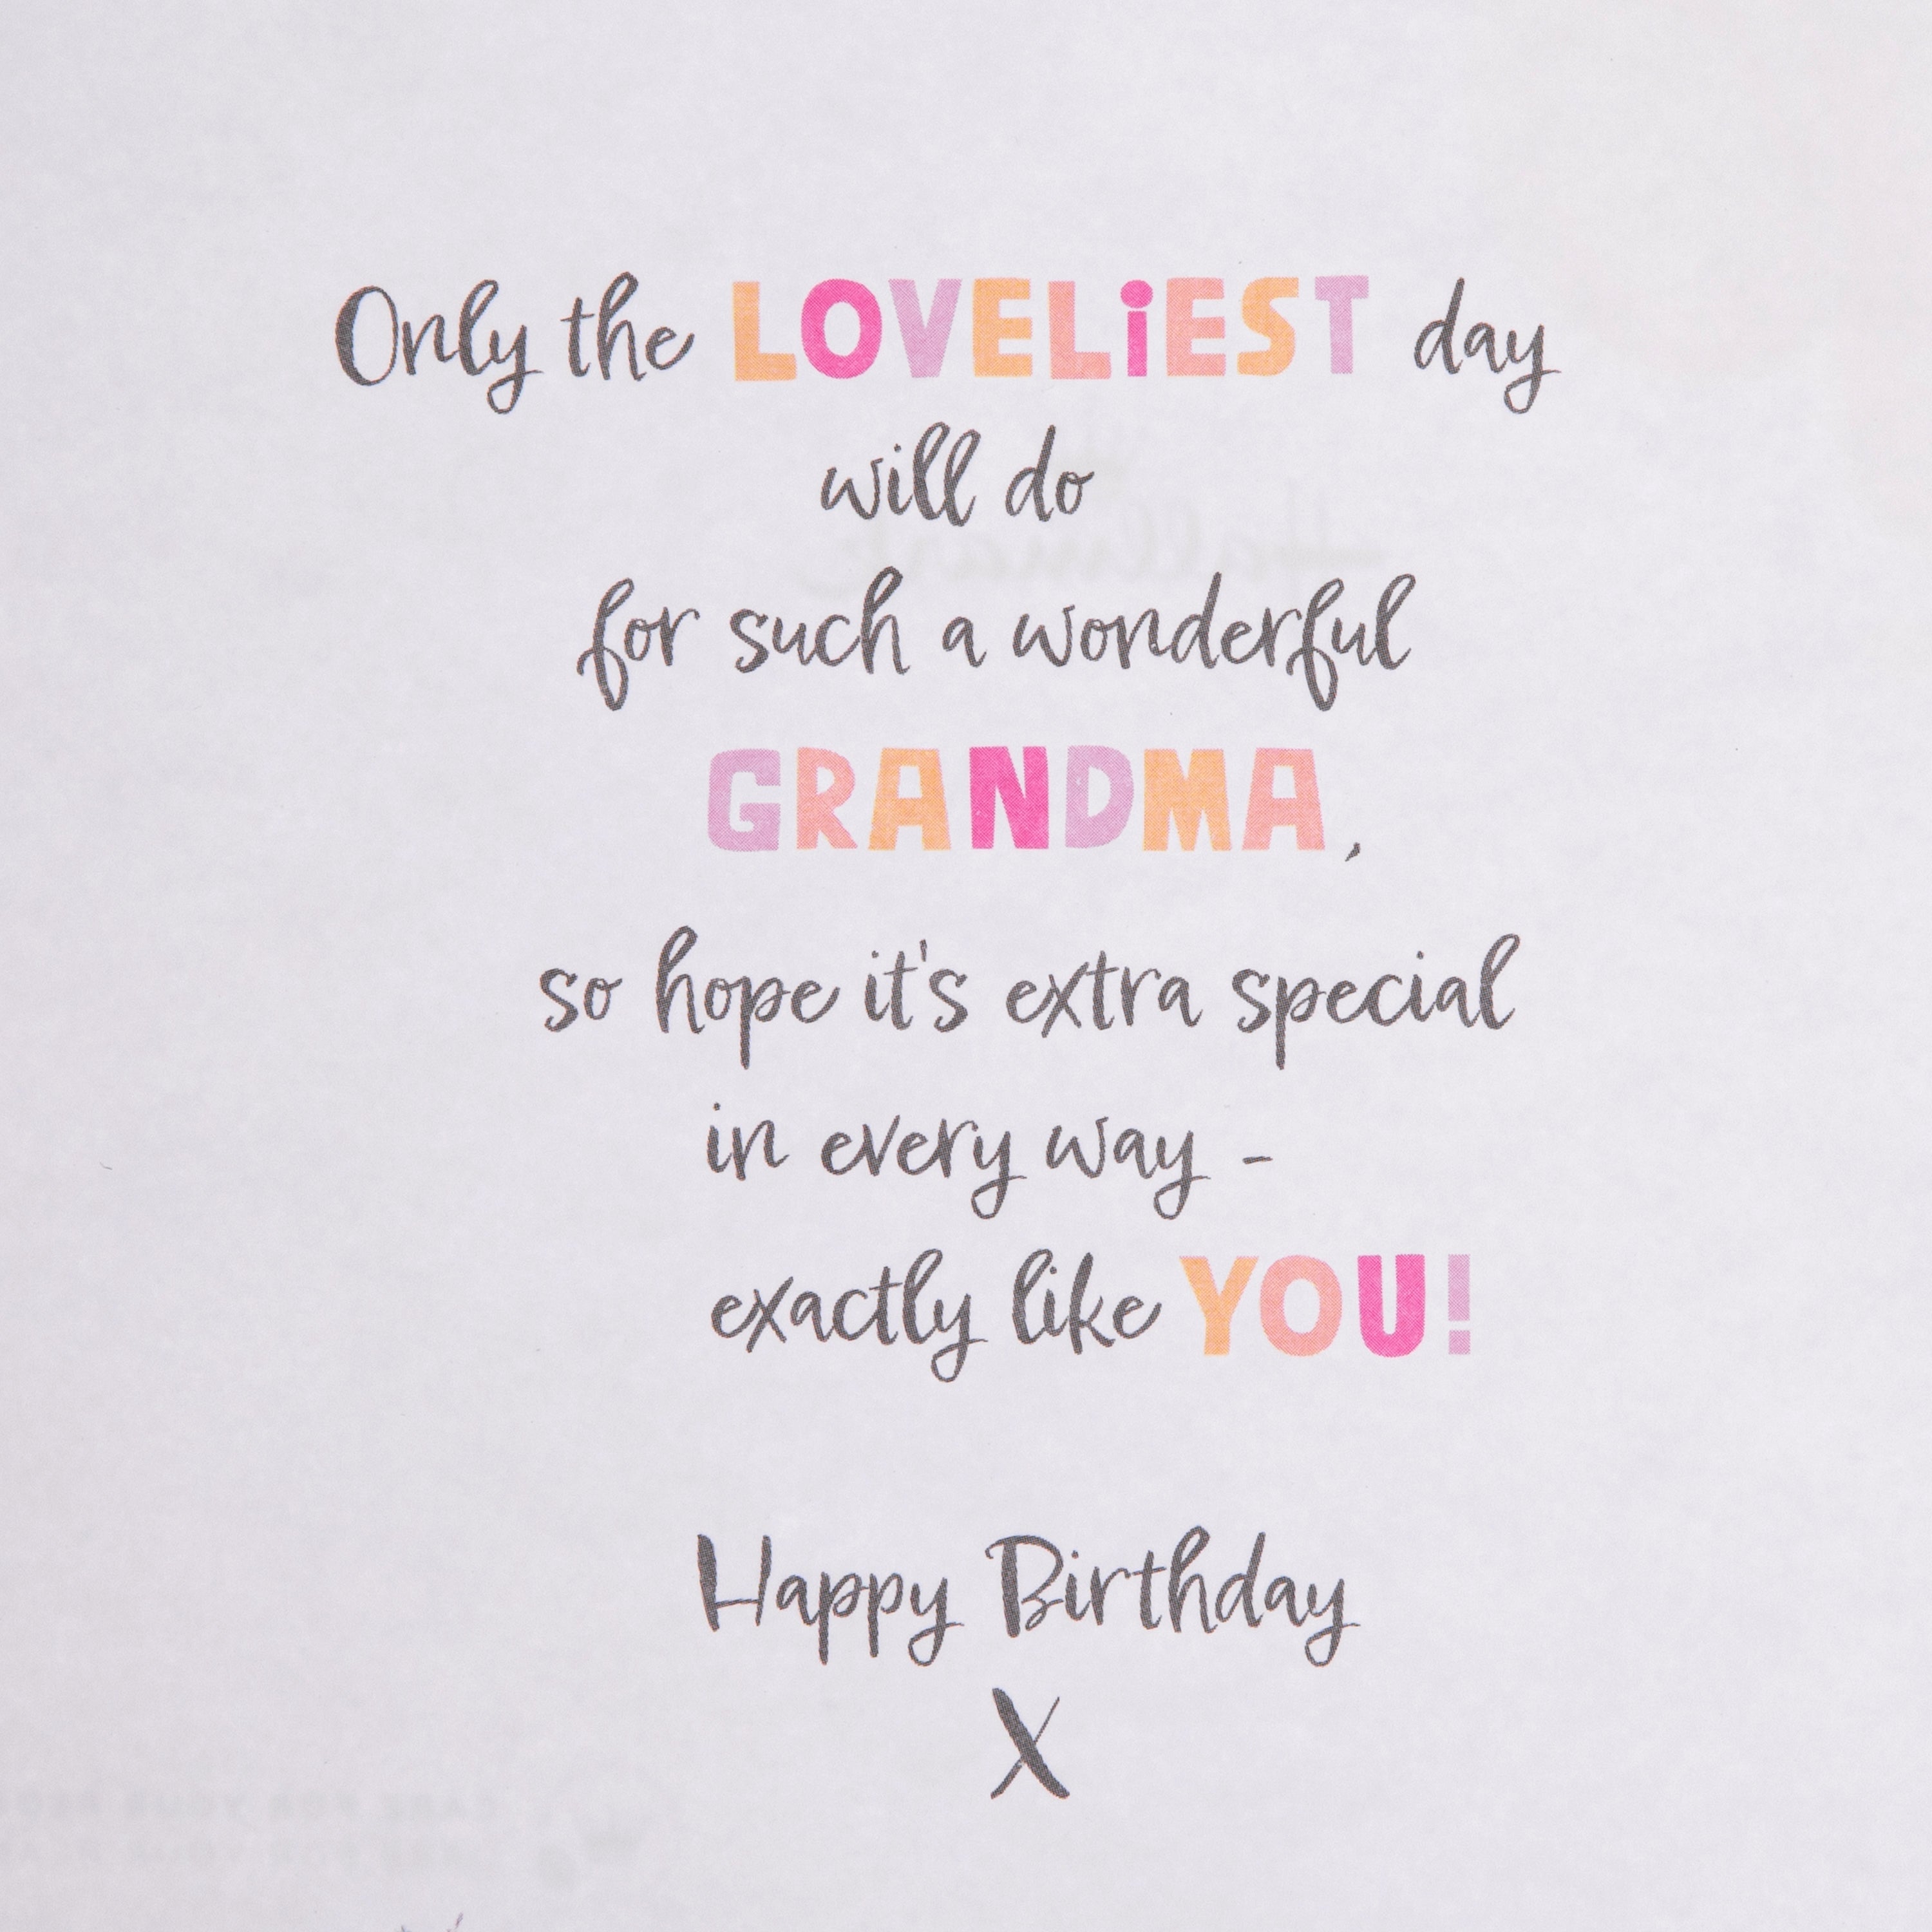 Only the LOVELiEST day
will do
Hallmark
for such a wonderful
GRANDMA,
so hope it's extra special
in every way -
exactly like YOU!
Happy Birthday
X
CARE FOR YOUR